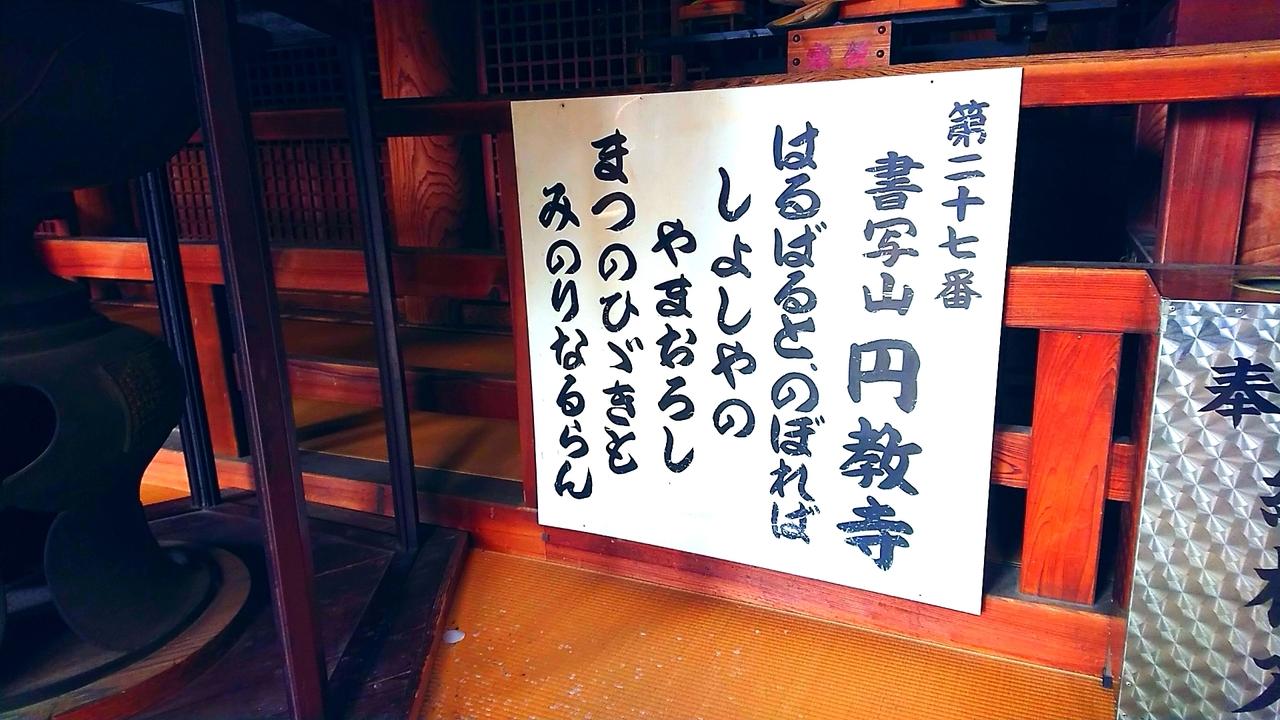 第二十七番
書写山 円教寺
はるばると、のぼれば
しょしやの
やまおろし
まつのひゞきと
みのりなるらん
奉